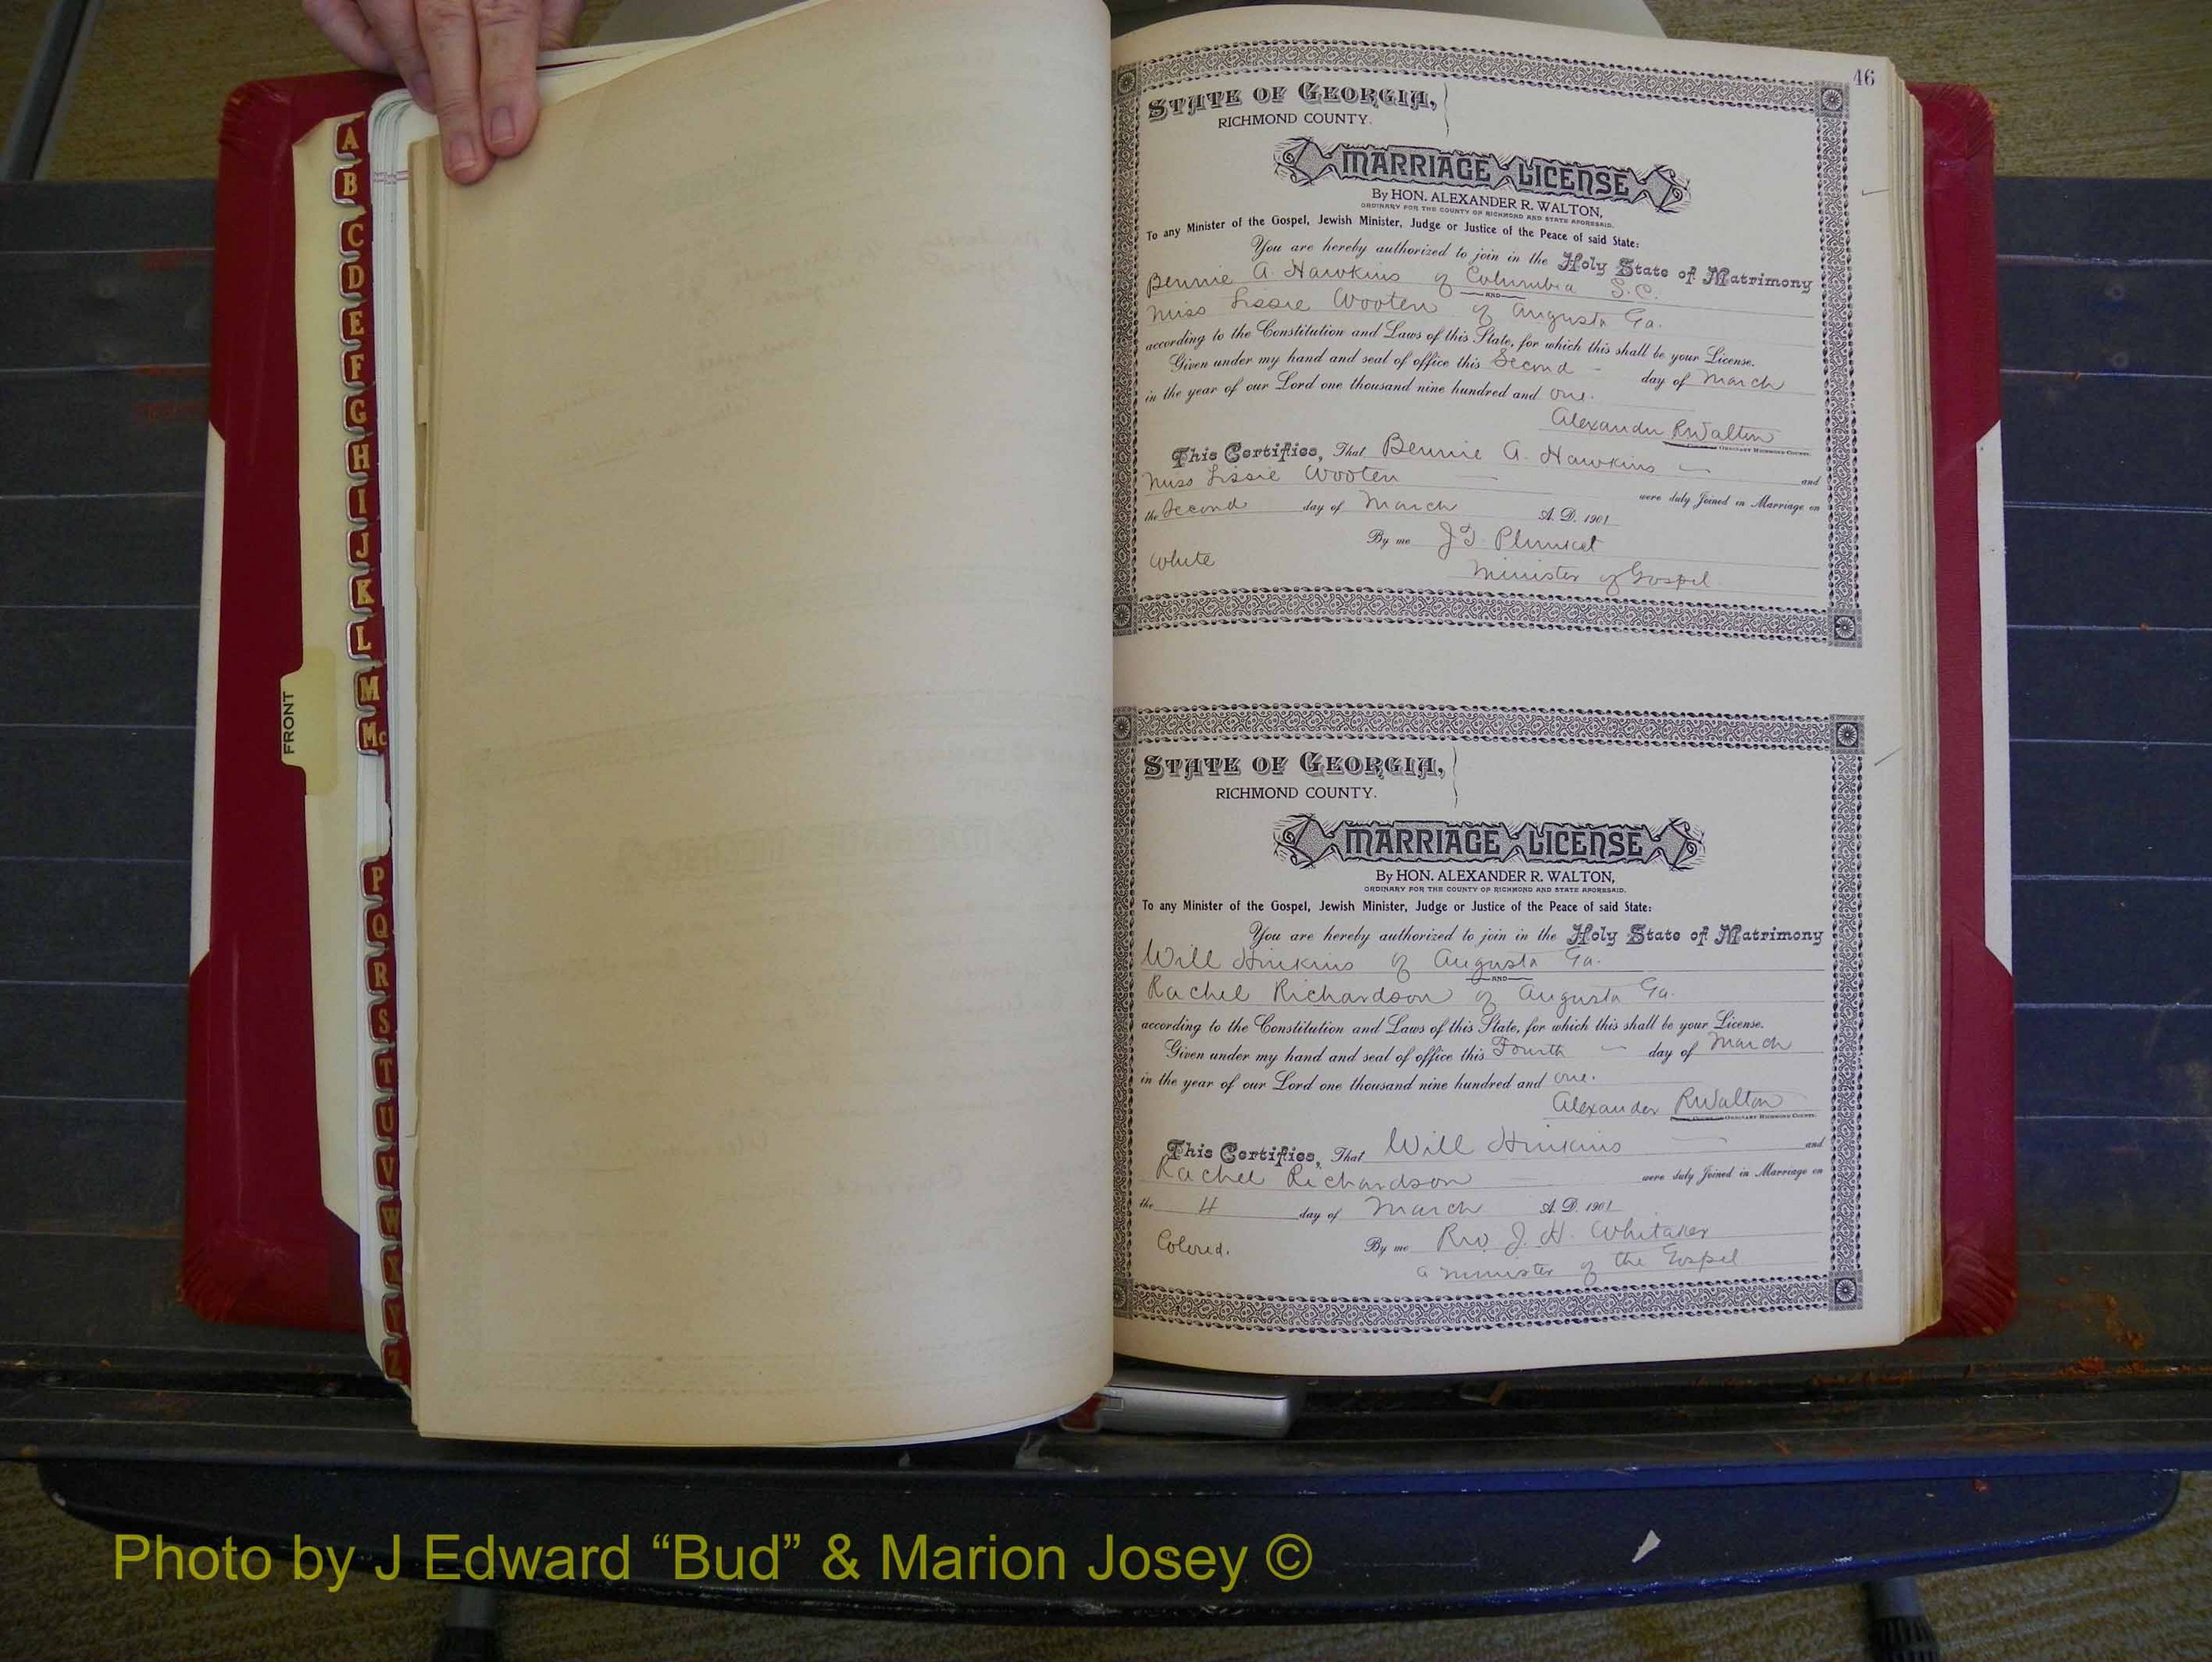 A
B
C
D
E
F
G
H
I
J
K
L
M
Mc
P
Q
R
S
T
U
V
W
X
Y
Z
FRONT
46
STATE OF GEORGIA,
RICHMOND COUNTY.
MARRIAGE LICENSE
By HON. ALEXANDER R. WALTON,
ORDINARY FOR THE COUNTY OF RICHMOND AND STATE AFORESAID.
To any Minister of the Gospel, Jewish Minister, Judge or Justice of the Peace of said State:
You are hereby authorized to join in the Holy State of Matrimony
Bennie A. Hawkins of Columbia S.C.
AND
Miss Lissie Wooten of Augusta Ga.
according to the Constitution and Laws of this State, for which this shall be your License.
Given under my hand and seal of office this Second day of March
in the year of our Lord one thousand nine hundred and one.
Alexander R Walton
ORDINARY RICHMOND COUNTY.
This Certifies, That Bennie A. Hawkins and
Miss Lissie Wooten were duly Joined in Marriage on
the Second day of March A. D. 1901
By me J T. Plunket
White
Minister of Gospel
STATE OF GEORGIA,
RICHMOND COUNTY.
MARRIAGE LICENSE
By HON. ALEXANDER R. WALTON,
ORDINARY FOR THE COUNTY OF RICHMOND AND STATE AFORESAID.
To any Minister of the Gospel, Jewish Minister, Judge or Justice of the Peace of said State:
You are hereby authorized to join in the Holy State of Matrimony
Will Hinkins of Augusta Ga.
AND
Rachel Richardson of Augusta Ga.
according to the Constitution and Laws of this State, for which this shall be your License.
Given under my hand and seal of office this Fourth day of March
in the year of our Lord one thousand nine hundred and one.
Alexander R Walton
ORDINARY RICHMOND COUNTY.
This Certifies, That Will Hinkins and
Rachel Richardson were duly Joined in Marriage on
the 4 day of March A. D. 1901
Colored. By me Rev J. H. Whitaker
a minister of the Gospel
Photo by J Edward “Bud” & Marion Josey ©